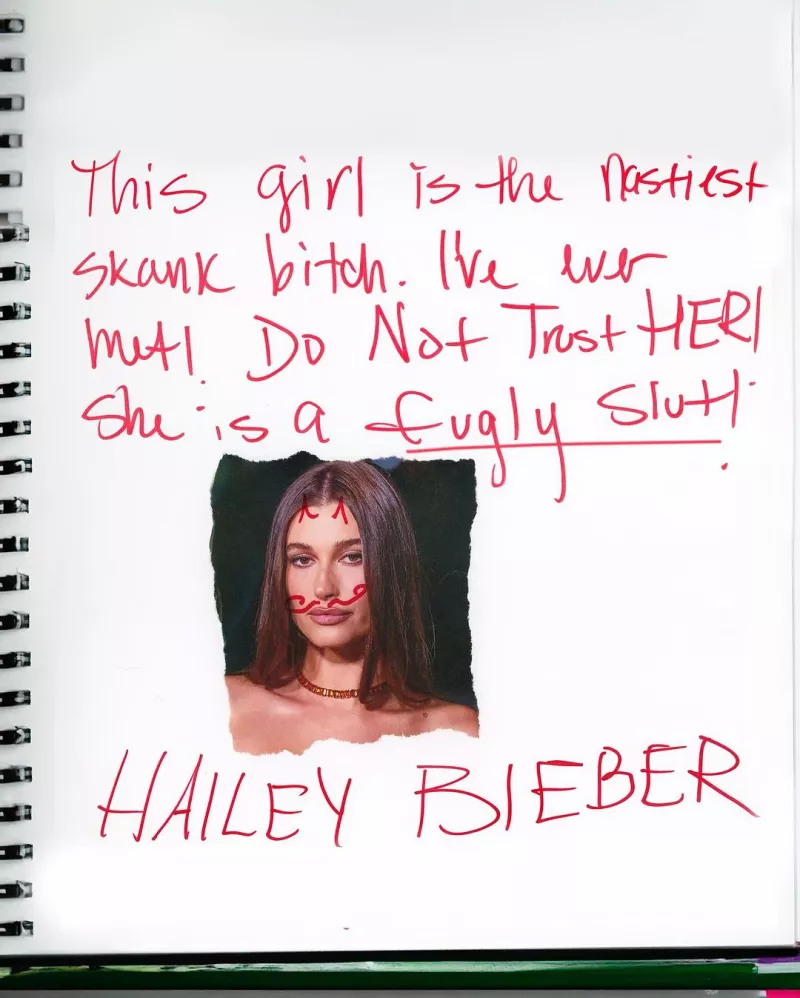 This girl is the nastiest
skank bitch. I've ever
met! Do Not Trust HER!
She is a fugly slut!
HAILEY BIEBER